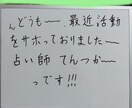 んどうも〜、最近活動
をサボっておりました〜
占い師 てんつか〜
っです!!!